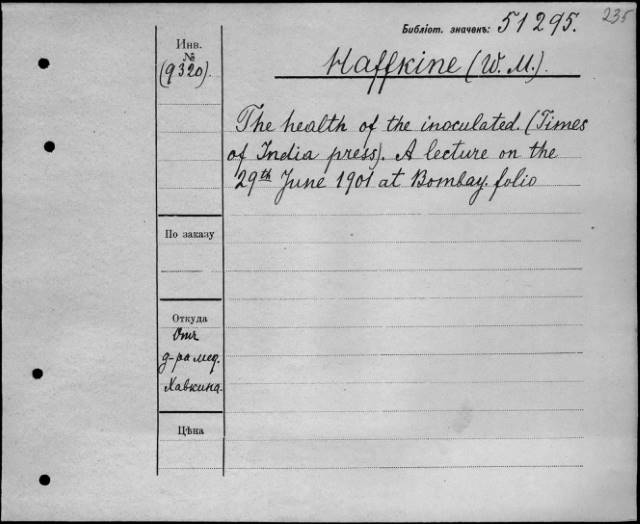 235
Библіот. значекъ: 51295.
Инв.
№
(9320).
Haffkine (W. M.).
The health of the inoculated. (Times
of India press). A lecture on the
29th June 1901 at Bombay. folio
По заказу
Откуда
Отъ
д-ра мед.
Хавкина.
Цѣна